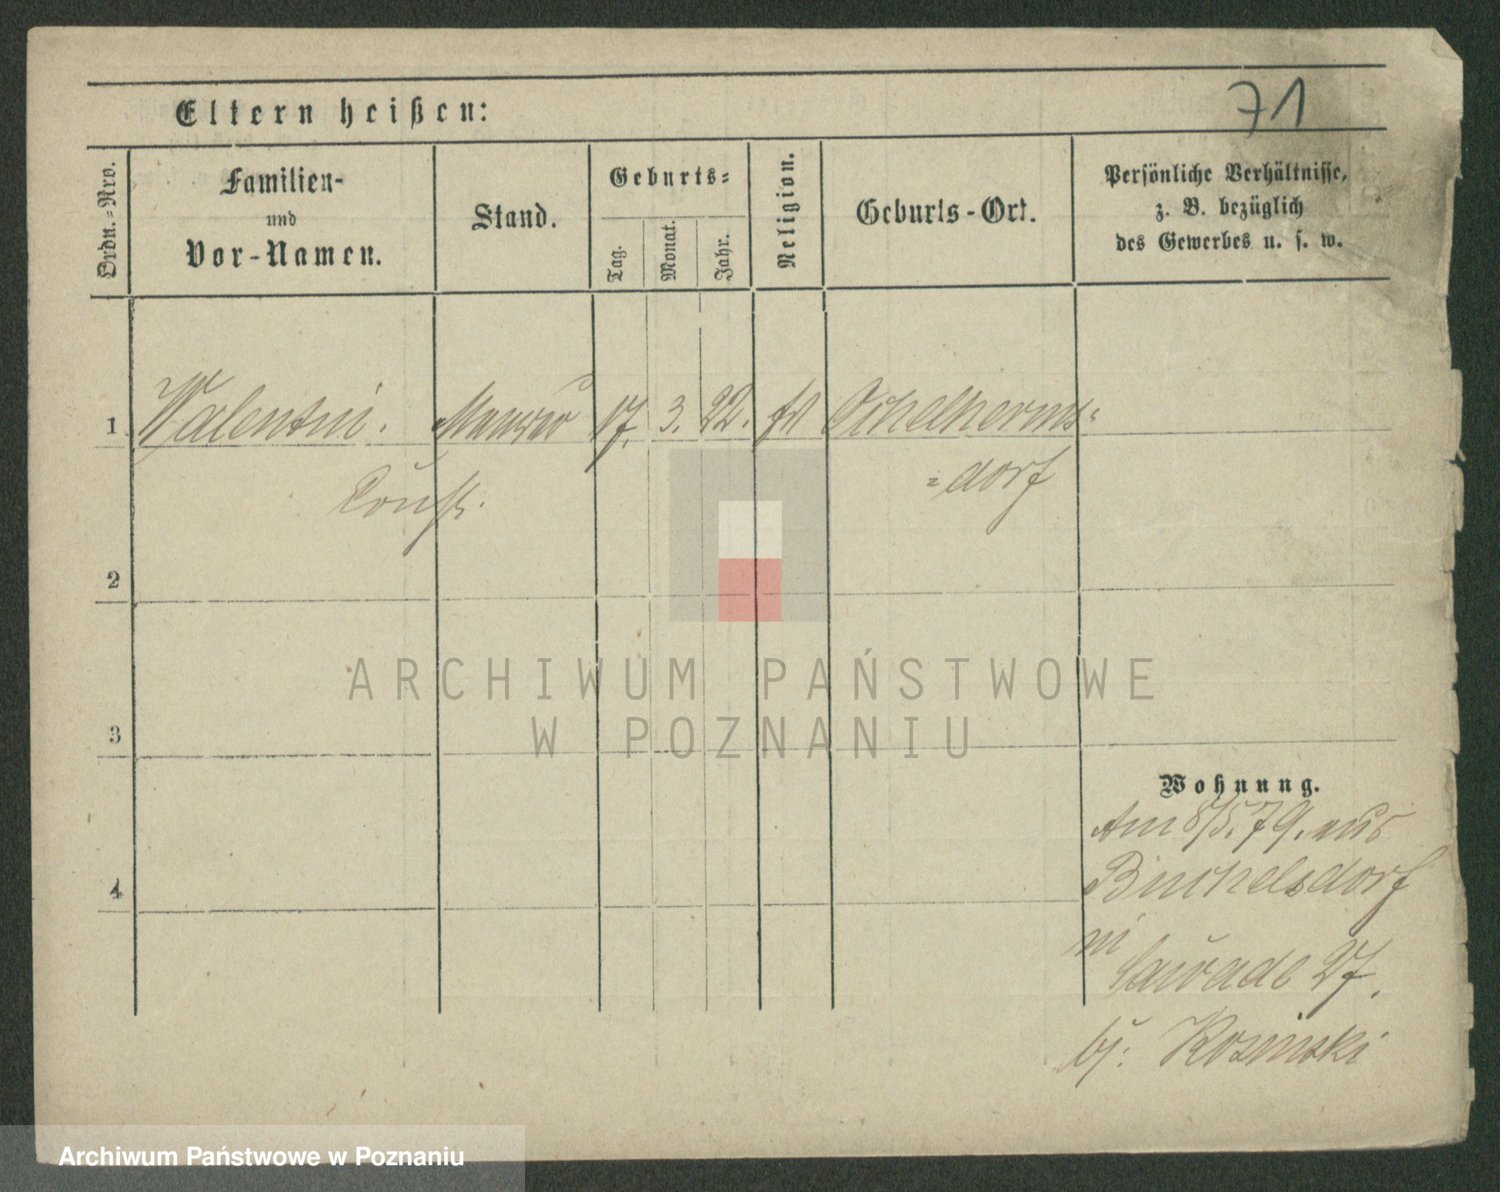 71
Eltern heißen:
Ordn.=Nro.
Familien-
und
Vor-Namen.
Stand.
Geburts=
Tag.
Monat.
Jahr.
Religion.
Geburts-Ort.
Persönliche Verhältnisse,
z. B. bezüglich
des Gewerbes u. s. w.
1 Valentin. Maurer 17. 3. 22.
=dorf
2
3
4
Wohnung.
Am 8/5. 79. aus
Buchelsdorf
in
27.
bj: Kosinski
ARCHIWUM PAŃSTWOWE
W POZNANIU
Archiwum Państwowe w Poznaniu